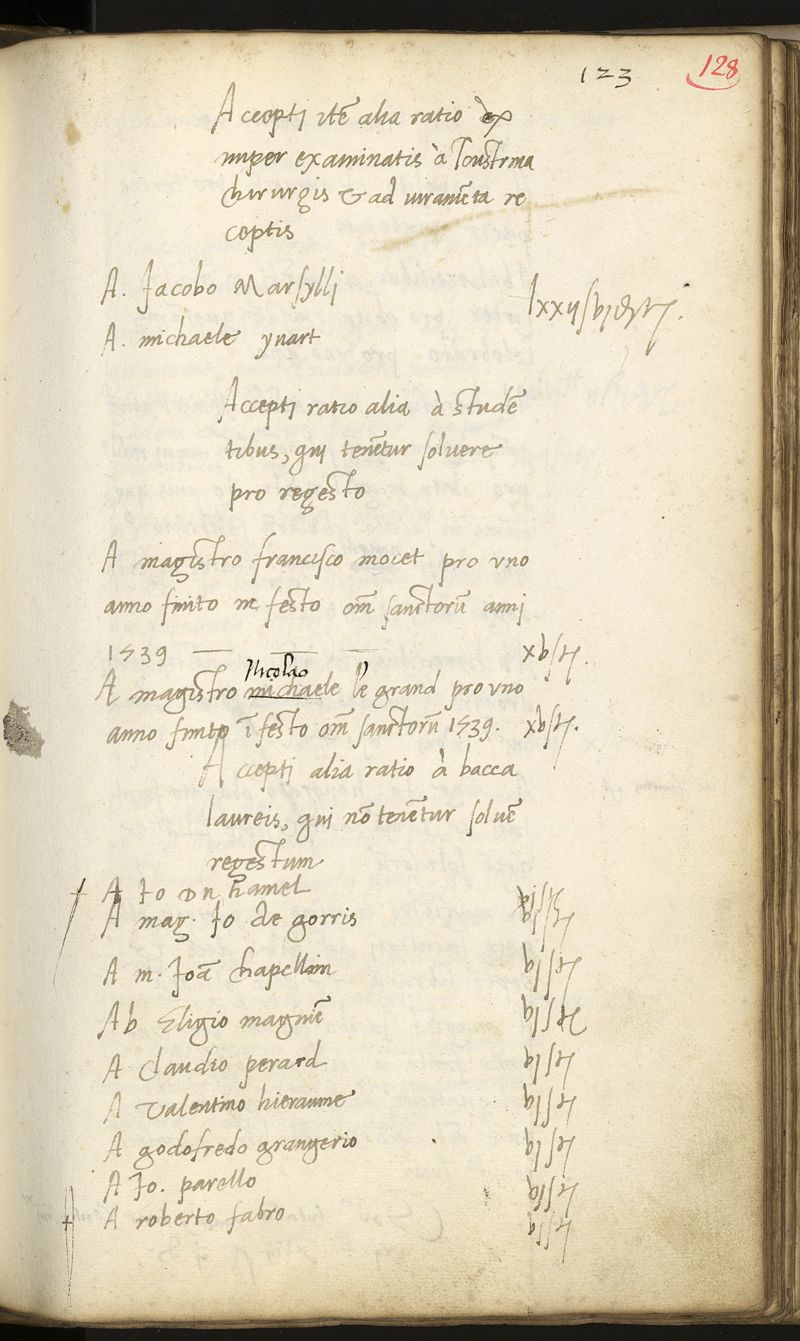 123 128
Accepti itē alia ratio ex
nuper examinatis à Tonstrina
chirurgis & ad iuramēta re
ceptis
A. Jacobo Marsylli
A. michaele ynart
Accepti ratio alia à studē
tibus, qui tenētur solvere
pro regesto
A magistro francisco mocet pro vno
anno finito in festo om̄ sanctorū anni
1539 xv s t
Nicolao
A magistro michaele le grand pro vno
anno finito ī festo om̄ sanctorū 1539. xv s t.
Accepti alia ratio à bacca
laureis, qui nō tenētur solvē
regestum
A Jo du hamel
A mag. Jo de gorris
A m. Joā chapellain
Ab Eligio magnie
A Claudio perard
A Valentino hieraume
A godofredo grangerio
A Jo. parello
A roberto fabro